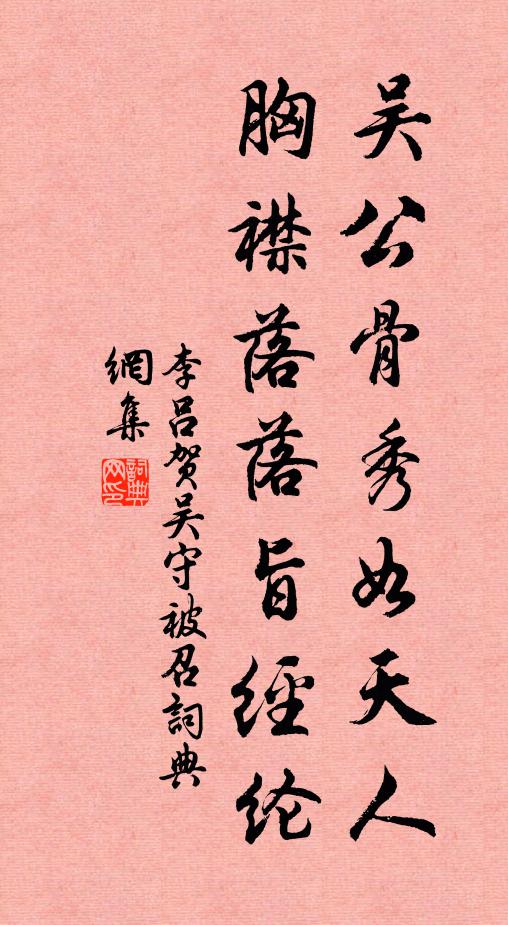 吴公骨秀如天人
胸襟落落旨經纶
李吕賀吴守被召詞典
網集
詞典网印